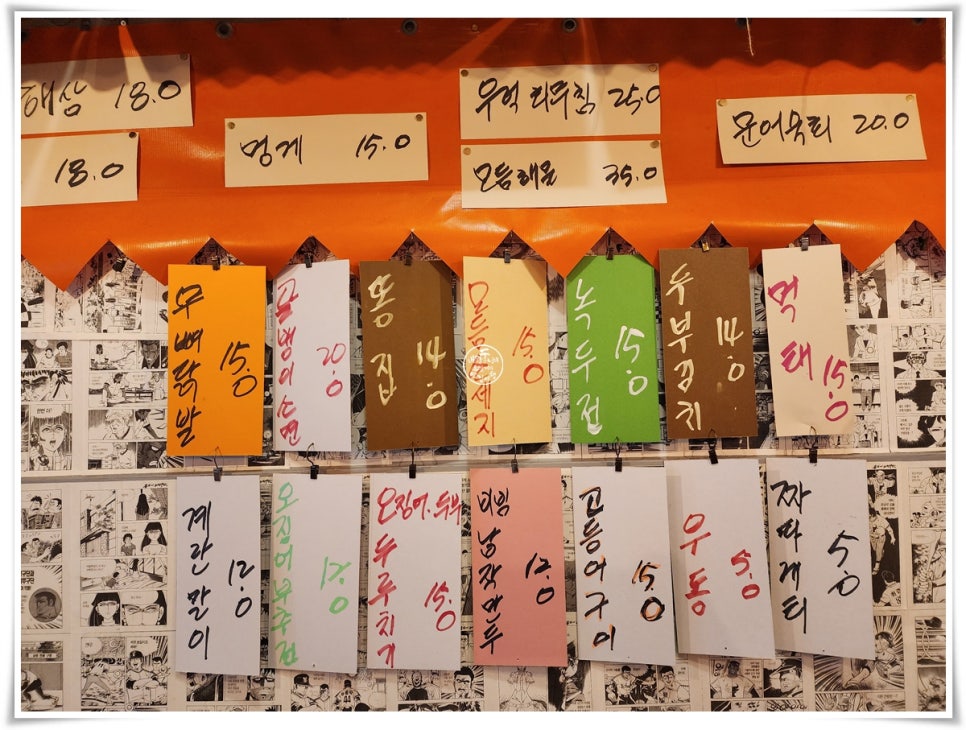 해삼 18.0
18.0
멍게 15.0
우럭 회무침 25.0
모듬해물 35.0
문어숙회 20.0
무뼈닭발 15.0
골뱅이소면 20.0
똥집 14.0
모듬소세지 15.0
녹두전 15.0
두부김치 14.0
먹태 15.0
계란말이 12.0
오징어부추전 12.0
오징어.두부
두루치기 15.0
납작만두 12.0
고등어구이 15.0
우동 5.0
짜파게티 5.0